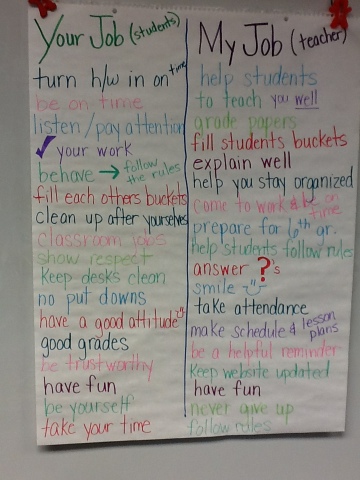 Your Job (students)
turn h/w in on time
be on time
listen/pay attention
✓ your work
behave → follow the rules
fill each others buckets
clean up after yourselves
classroom jobs
show respect
Keep desks clean
no put downs
have a good attitude
good grades
be trustworthy
have fun
be yourself
take your time
My Job (teacher)
help students
to teach you well
grade papers
fill students buckets
explain well
help you stay organized
come to work & be on time
prepare for 6th gr.
help students follow rules
answer ?'s
smile
take attendance
make schedule & lesson plans
be a helpful reminder
Keep website updated
have fun
never give up
follow rules